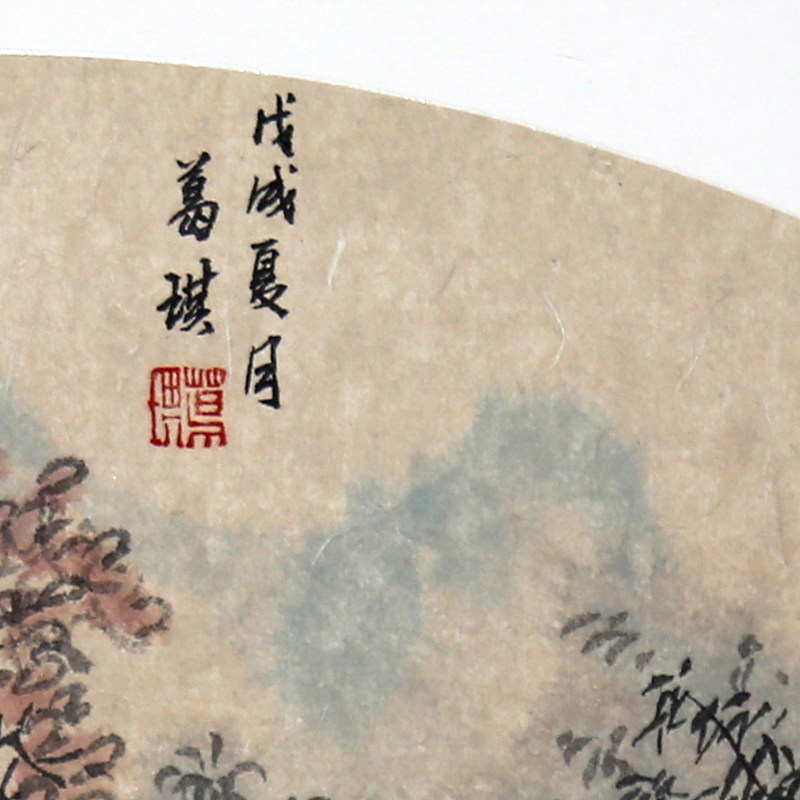 戊戌夏月
葛琪